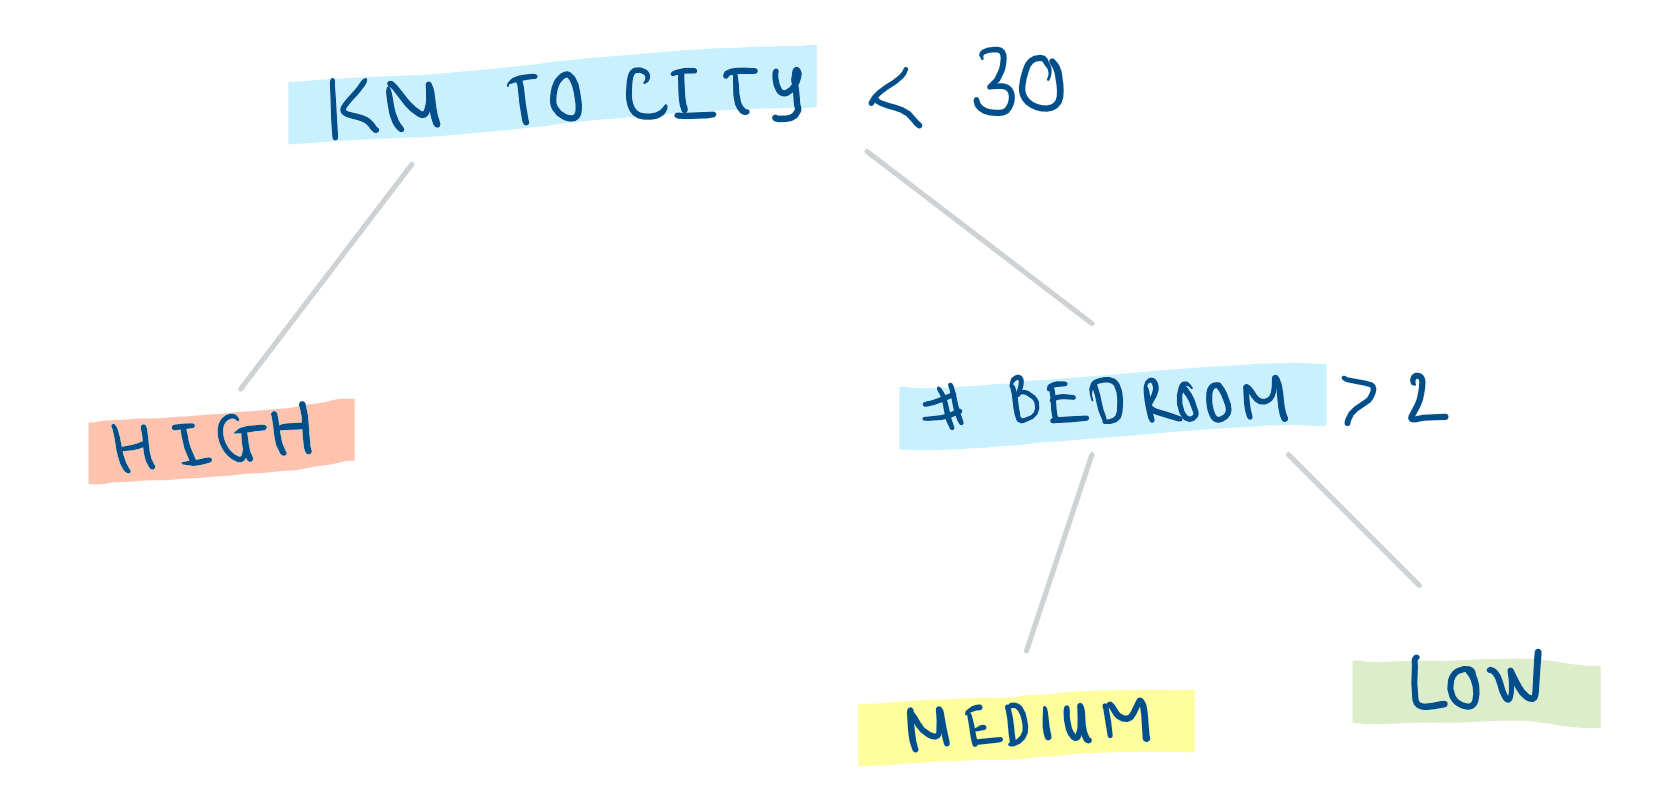 KM TO CITY < 30
HIGH
# BEDROOM > 2
MEDIUM
LOW